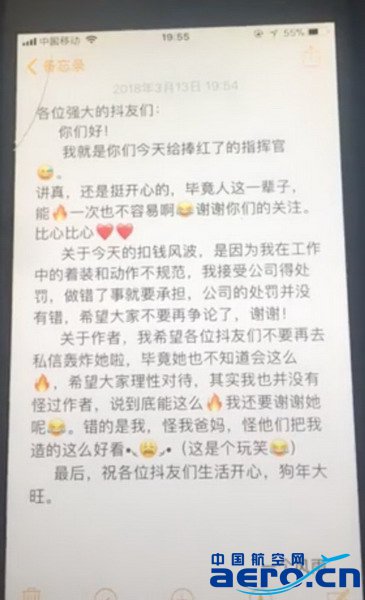 中国移动 19:55 55%
备忘录
2018年3月13日 19:54
各位强大的抖友们：
你们好！
我就是你们今天给捧红了的指挥官
😅。
讲真，还是挺开心的，毕竟人这一辈子，
能🔥一次也不容易啊😂谢谢你们的关注。
比心比心❤️❤️
关于今天的扣钱风波，是因为我在工作
中的着装和动作不规范，我接受公司得处
罚，做错了事就要承担，公司的处罚并没
有错，希望大家不要再争论了，谢谢！
关于作者，我希望各位抖友们不要再去
私信轰炸她啦，毕竟她也不知道会这么
🔥，希望大家理性对待，其实我也并没有
怪过作者，说到底能这么🔥我还要谢谢她
呢😂。错的是我，怪我爸妈，怪他们把我
造的这么好看•́︿😩︿•̀（这是个玩笑😂）
最后，祝各位抖友们生活开心，狗年大
旺。
中国航空网
aero.cn